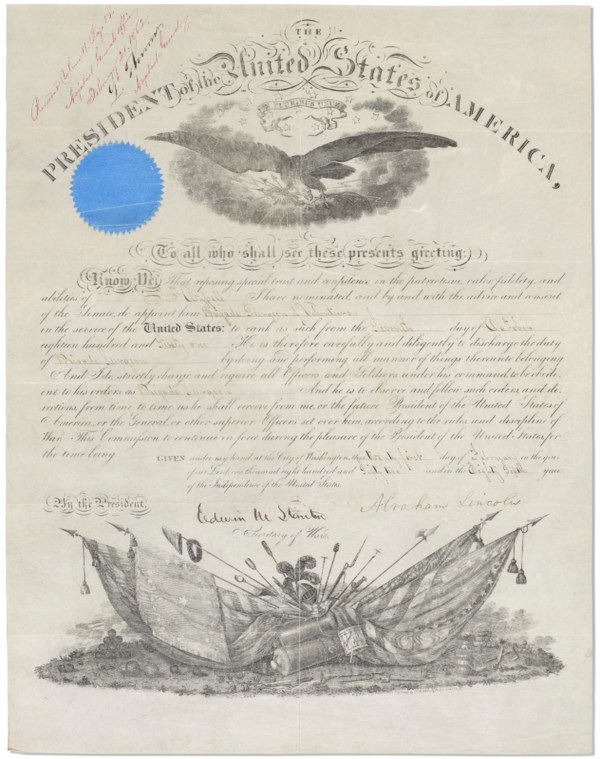 THE
PRESIDENT of the United States of AMERICA,
E PLURIBUS UNUM
To all who shall see these presents greeting:
Know Ye, That reposing special trust and confidence in the patriotism, valor, fidelity, and
abilities of I have nominated, and by and with the advice and consent
of the Senate, do appoint him Brigade Surgeon of Volunteers
in the service of the United States: to rank as such from the day of
eighteen hundred and Sixty one He is therefore carefully and diligently to discharge the duty
of Brigade Surgeon by doing and performing all manner of things thereunto belonging.
And I do strictly charge, and require all Officers and Soldiers under his command, to be obedi-
ent to his orders as Brigade Surgeon And he is to observe and follow such orders, and di-
rections, from time to time, as he shall receive from me, or the future President of the United States of
America, or the General, or other superior Officers set over him, according to the rules and discipline of
War. This Commission to continue in force during the pleasure of the President of the United States, for
the time being.
GIVEN under my hand, at the City of Washington, this day of in the year
of our Lord, one thousand eight hundred and and in the year
of the Independence of the United States.
By the President
Abraham Lincoln
Edwin M Stanton
Secretary of War.